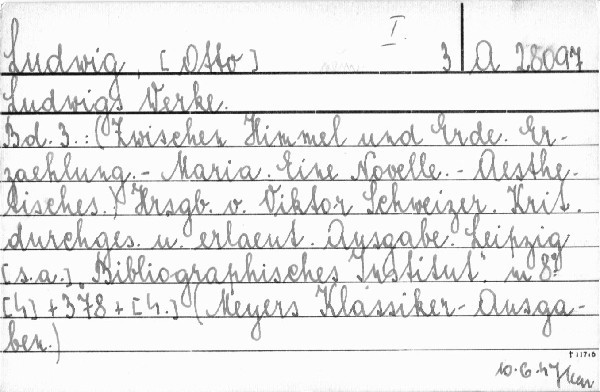 I.
Ludwig, [Otto] 3 A 28097
Ludwigs Werke.
Bd. 3.: (Zwischen Himmel und Erde. Er-
zaehlung. - Maria. Eine Novelle. - Aesthe-
tisches.) Hrsgb. v. Viktor Schweizer. Krit.
durchges. u. erlaeut. Ausgabe. Leipzig
[s.a.] "Bibliographisches Institut". m 8°
[4] + 378 + [4.] (Meyers Klassiker-Ausga-
ben.)
10.6.47